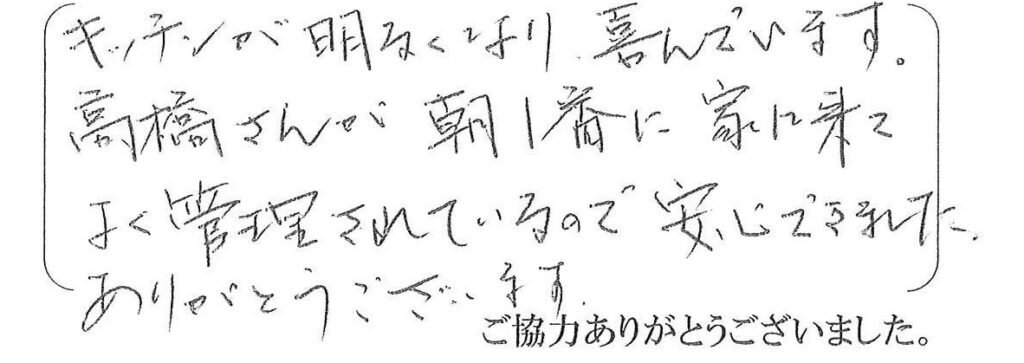 キッチンが明るくなり喜んでいます。
高橋さんが朝1番に家に来て
よく管理されているので安心できました。
ありがとうございます。
ご協力ありがとうございました。